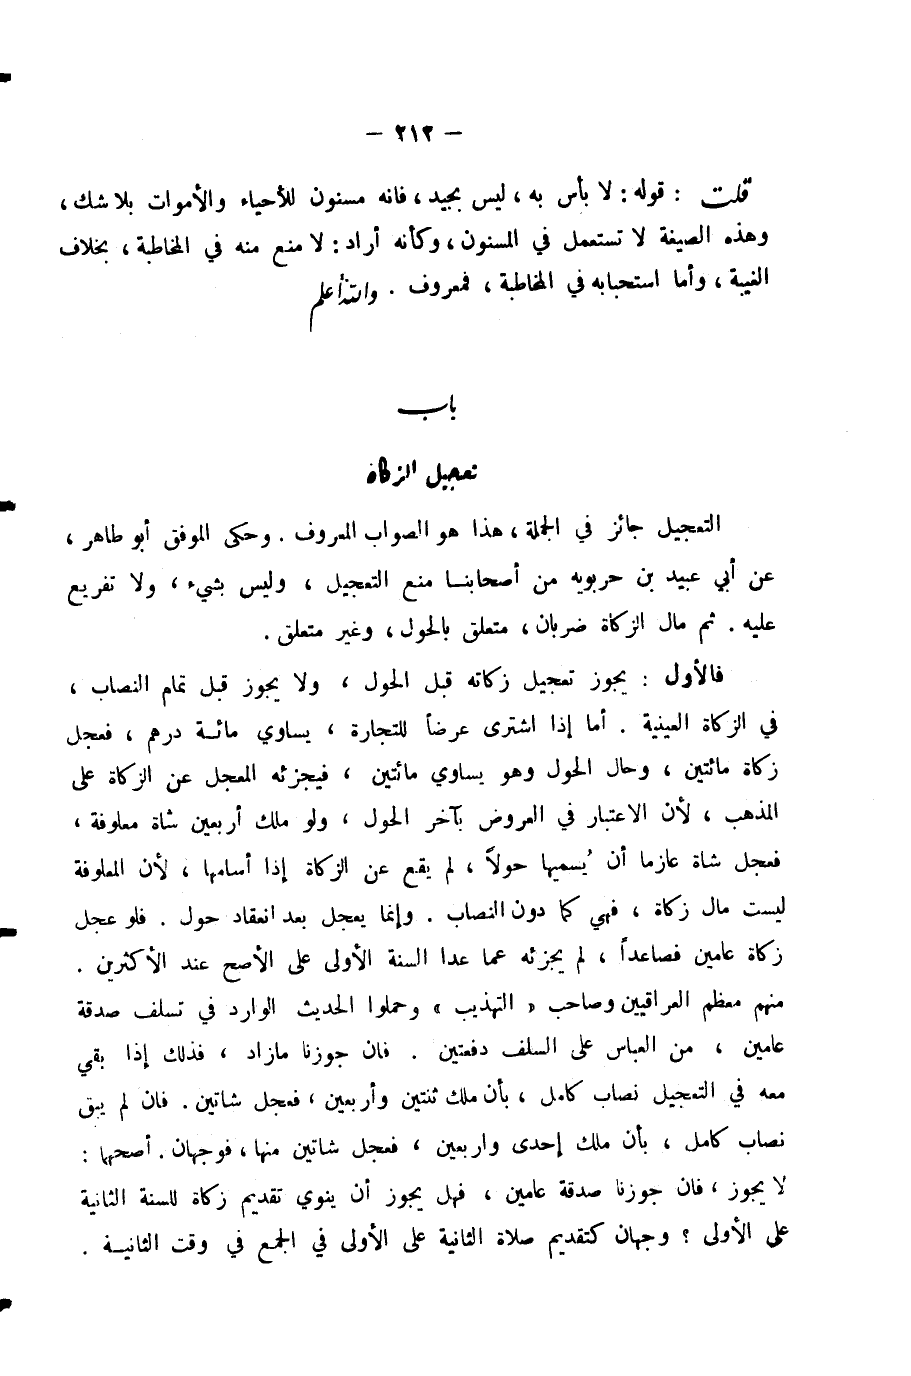 — ٢١٢ —
قلت : قوله : لا بأس به ، ليس بجيد ، فانه مسنون للأحياء والأموات بلا شك ،
وهذه الصيغة لا تستعمل في المسنون ، وكأنه أراد : لا منع منه في المخاطبة ، بخلاف
الغيبة ، وأما استحبابه في المخاطبة ، فمعروف . والله أعلم
باب
تعجيل الزكاة
التعجيل جائز في الجملة ، هذا هو الصواب المعروف . وحكى الموفق أبو طاهر ،
عن أبي عبيد بن حربويه من أصحابنا منع التعجيل ، وليس بشيء ، ولا تفريع
عليه . ثم مال الزكاة ضربان ، متعلق بالحول ، وغير متعلق .
فالأول : يجوز تعجيل زكاته قبل الحول ، ولا يجوز قبل تمام النصاب ،
في الزكاة العينية . أما إذا اشترى عرضاً للتجارة ، يساوي مائة درهم ، فعجل
زكاة مائتين ، وحال الحول وهو يساوي مائتين ، فيجزئه المعجل عن الزكاة على
المذهب ، لأن الاعتبار في العروض بآخر الحول ، ولو ملك أربعين شاة معلوفة ،
فعجل شاة عازما أن يُسميها حولاً ، لم يقع عن الزكاة إذا أسامها ، لأن المعلوفة
ليست مال زكاة ، فهي كما دون النصاب . وإنما يعجل بعد انعقاد حول . فلو عجل
زكاة عامين فصاعداً ، لم يجزئه عما عدا السنة الأولى على الأصح عند الأكثرين .
منهم معظم العراقيين وصاحب « التهذيب » وحملوا الحديث الوارد في تسلف صدقة
عامين ، من العباس على السلف دفعتين . فان جوزنا مازاد ، فذلك إذا بقي
معه في التعجيل نصاب كامل ، بأن ملك ثنتين وأربعين ، فعجل شاتين . فان لم يبق
نصاب كامل ، بأن ملك إحدى واربعين ، فعجل شاتين منها ، فوجهان . أصحها :
لا يجوز ، فان جوزنا صدقة عامين ، فهل يجوز أن ينوي تقديم زكاة للسنة الثانية
على الأولى ؟ وجهان كتقديم صلاة الثانية على الأولى في الجمع في وقت الثانية .